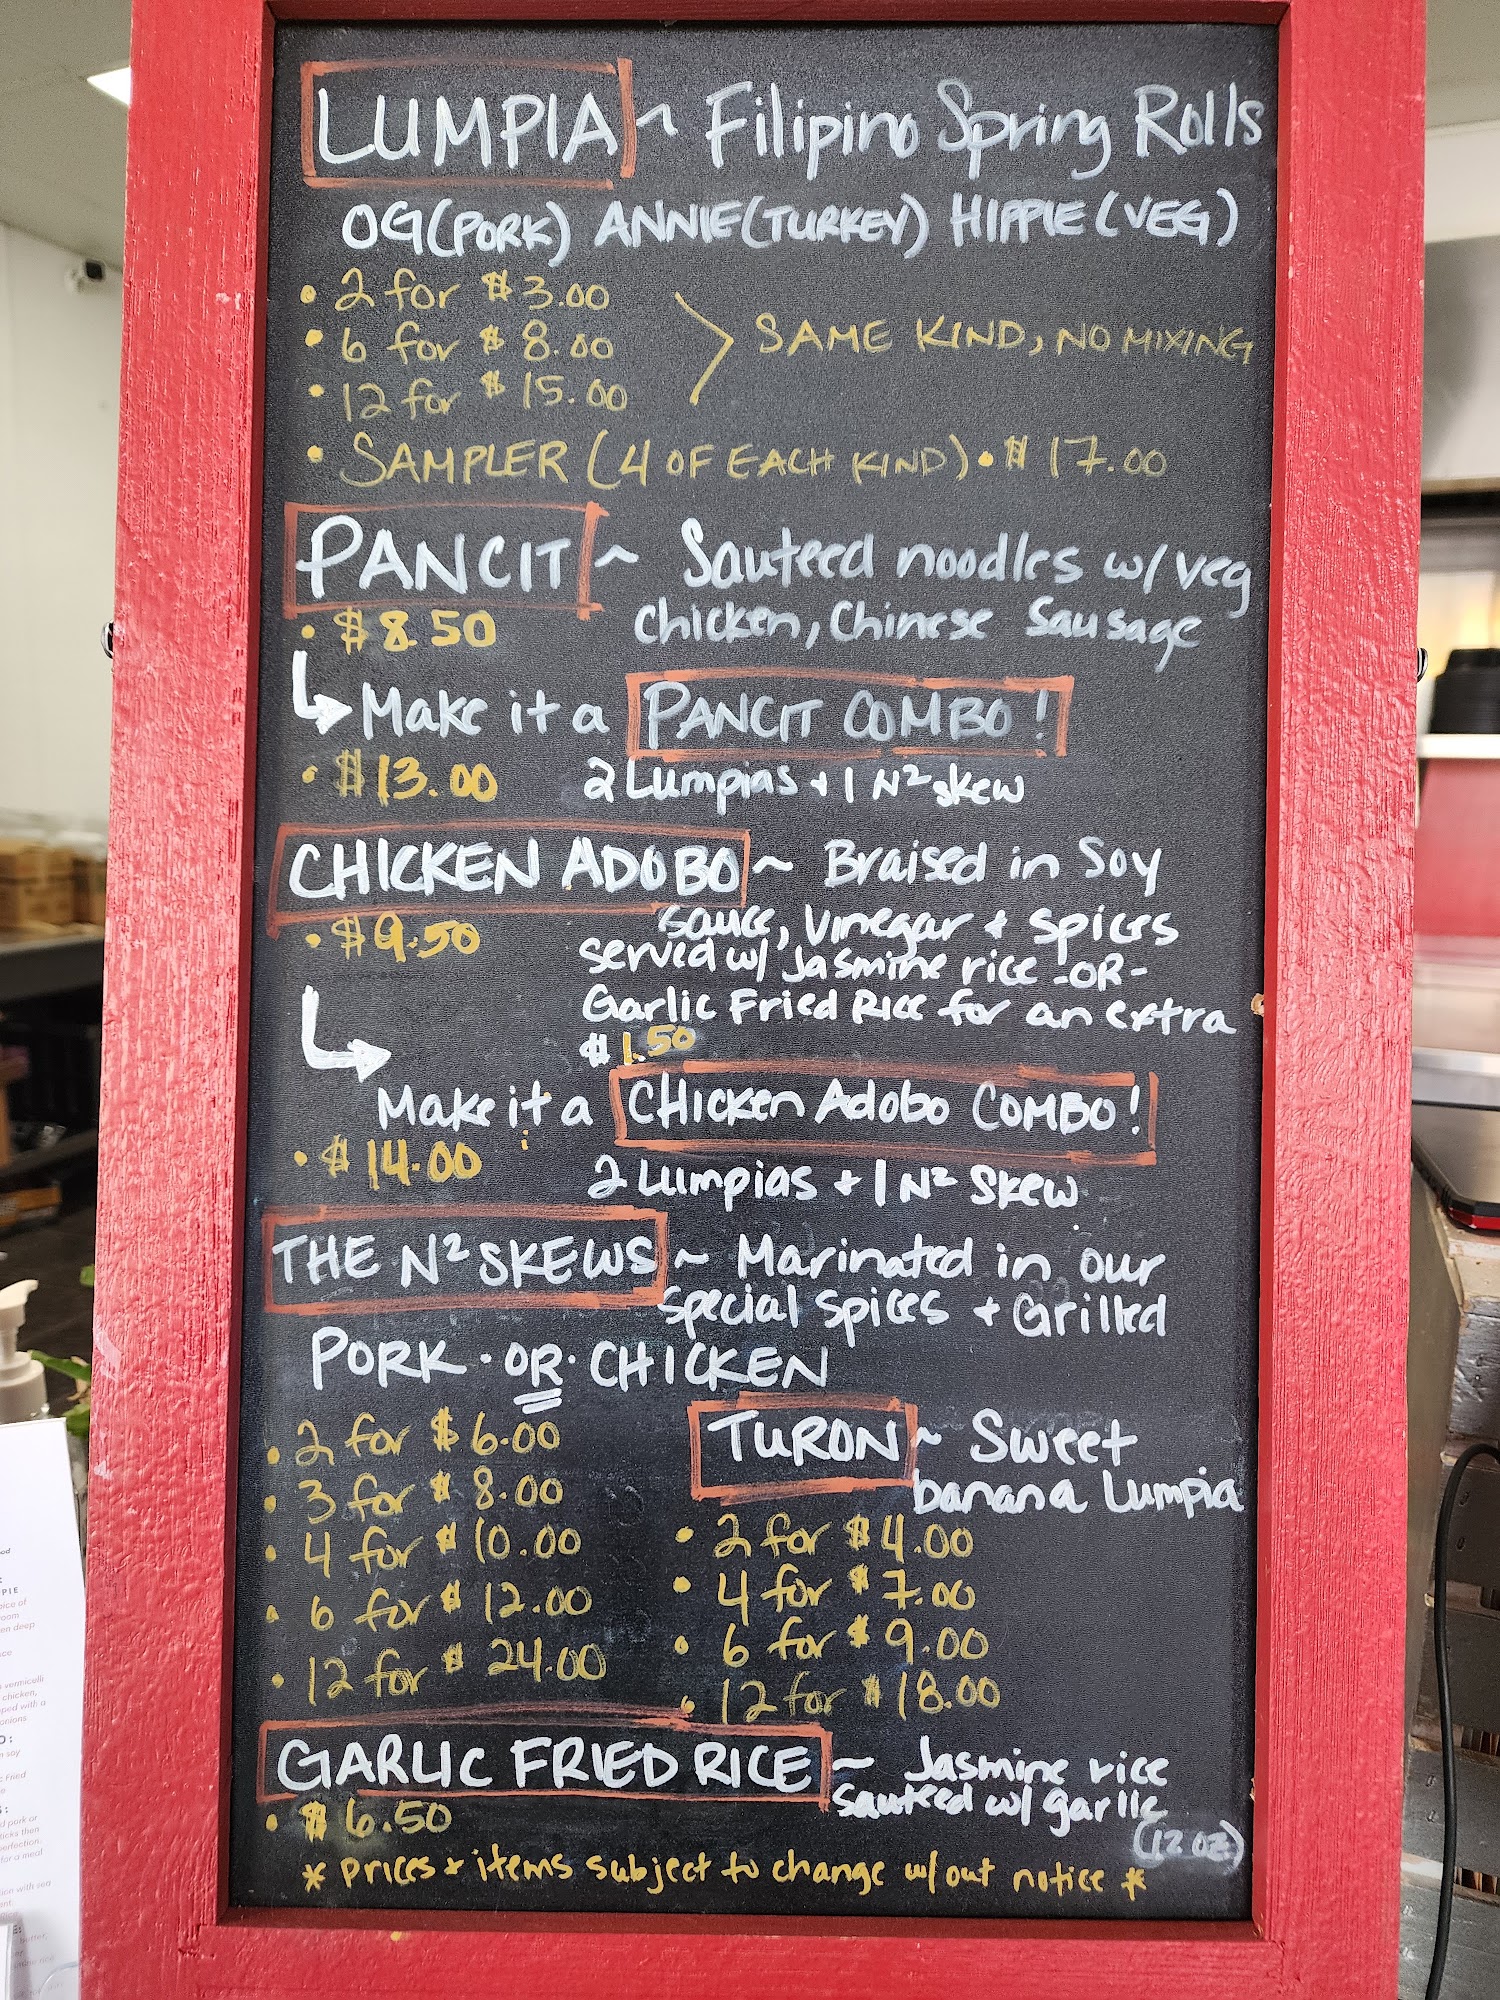 LUMPIA ~ Filipino Spring Rolls
OG (PORK) ANNIE (TURKEY) HIPPIE (VEG)
• 2 for $3.00
• 6 for $8.00
• 12 for $15.00
SAME KIND, NO MIXING
• SAMPLER (4 OF EACH KIND) • $17.00
PANCIT ~ Sauteed noodles w/ veg
chicken, Chinese Sausage
• $8.50
Make it a PANCIT COMBO!
• $13.00 2 Lumpias + 1 N² skew
CHICKEN ADOBO ~ Braised in Soy
sauce, vinegar + spices
• $9.50
served w/ Jasmine rice -OR-
Garlic Fried Rice for an extra
$1.50
Make it a CHicken Adobo COMBO!
• $14.00 2 Lumpias + 1 N² Skew
THE N² SKEWS ~ Marinated in our
special spices + Grilled
PORK • OR • CHICKEN
• 2 for $6.00
• 3 for $8.00
• 4 for $10.00
• 6 for $12.00
• 12 for $24.00
TURON ~ Sweet
banana Lumpia
• 2 for $4.00
• 4 for $7.00
• 6 for $9.00
• 12 for $18.00
GARLIC FRIED RICE ~ Jasmine rice
sauteed w/ garlic
• $6.50
(12 oz)
* prices + items subject to change w/out notice *